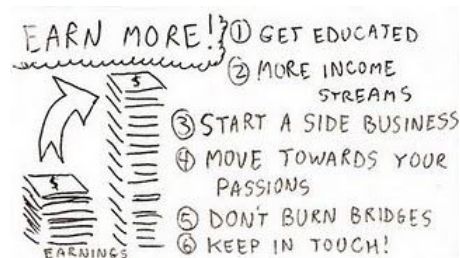 EARN MORE!
① GET EDUCATED
② MORE INCOME
STREAMS
③ START A SIDE BUSINESS
④ MOVE TOWARDS YOUR
PASSIONS
⑤ DON'T BURN BRIDGES
⑥ KEEP IN TOUCH!
$
$
EARNINGS